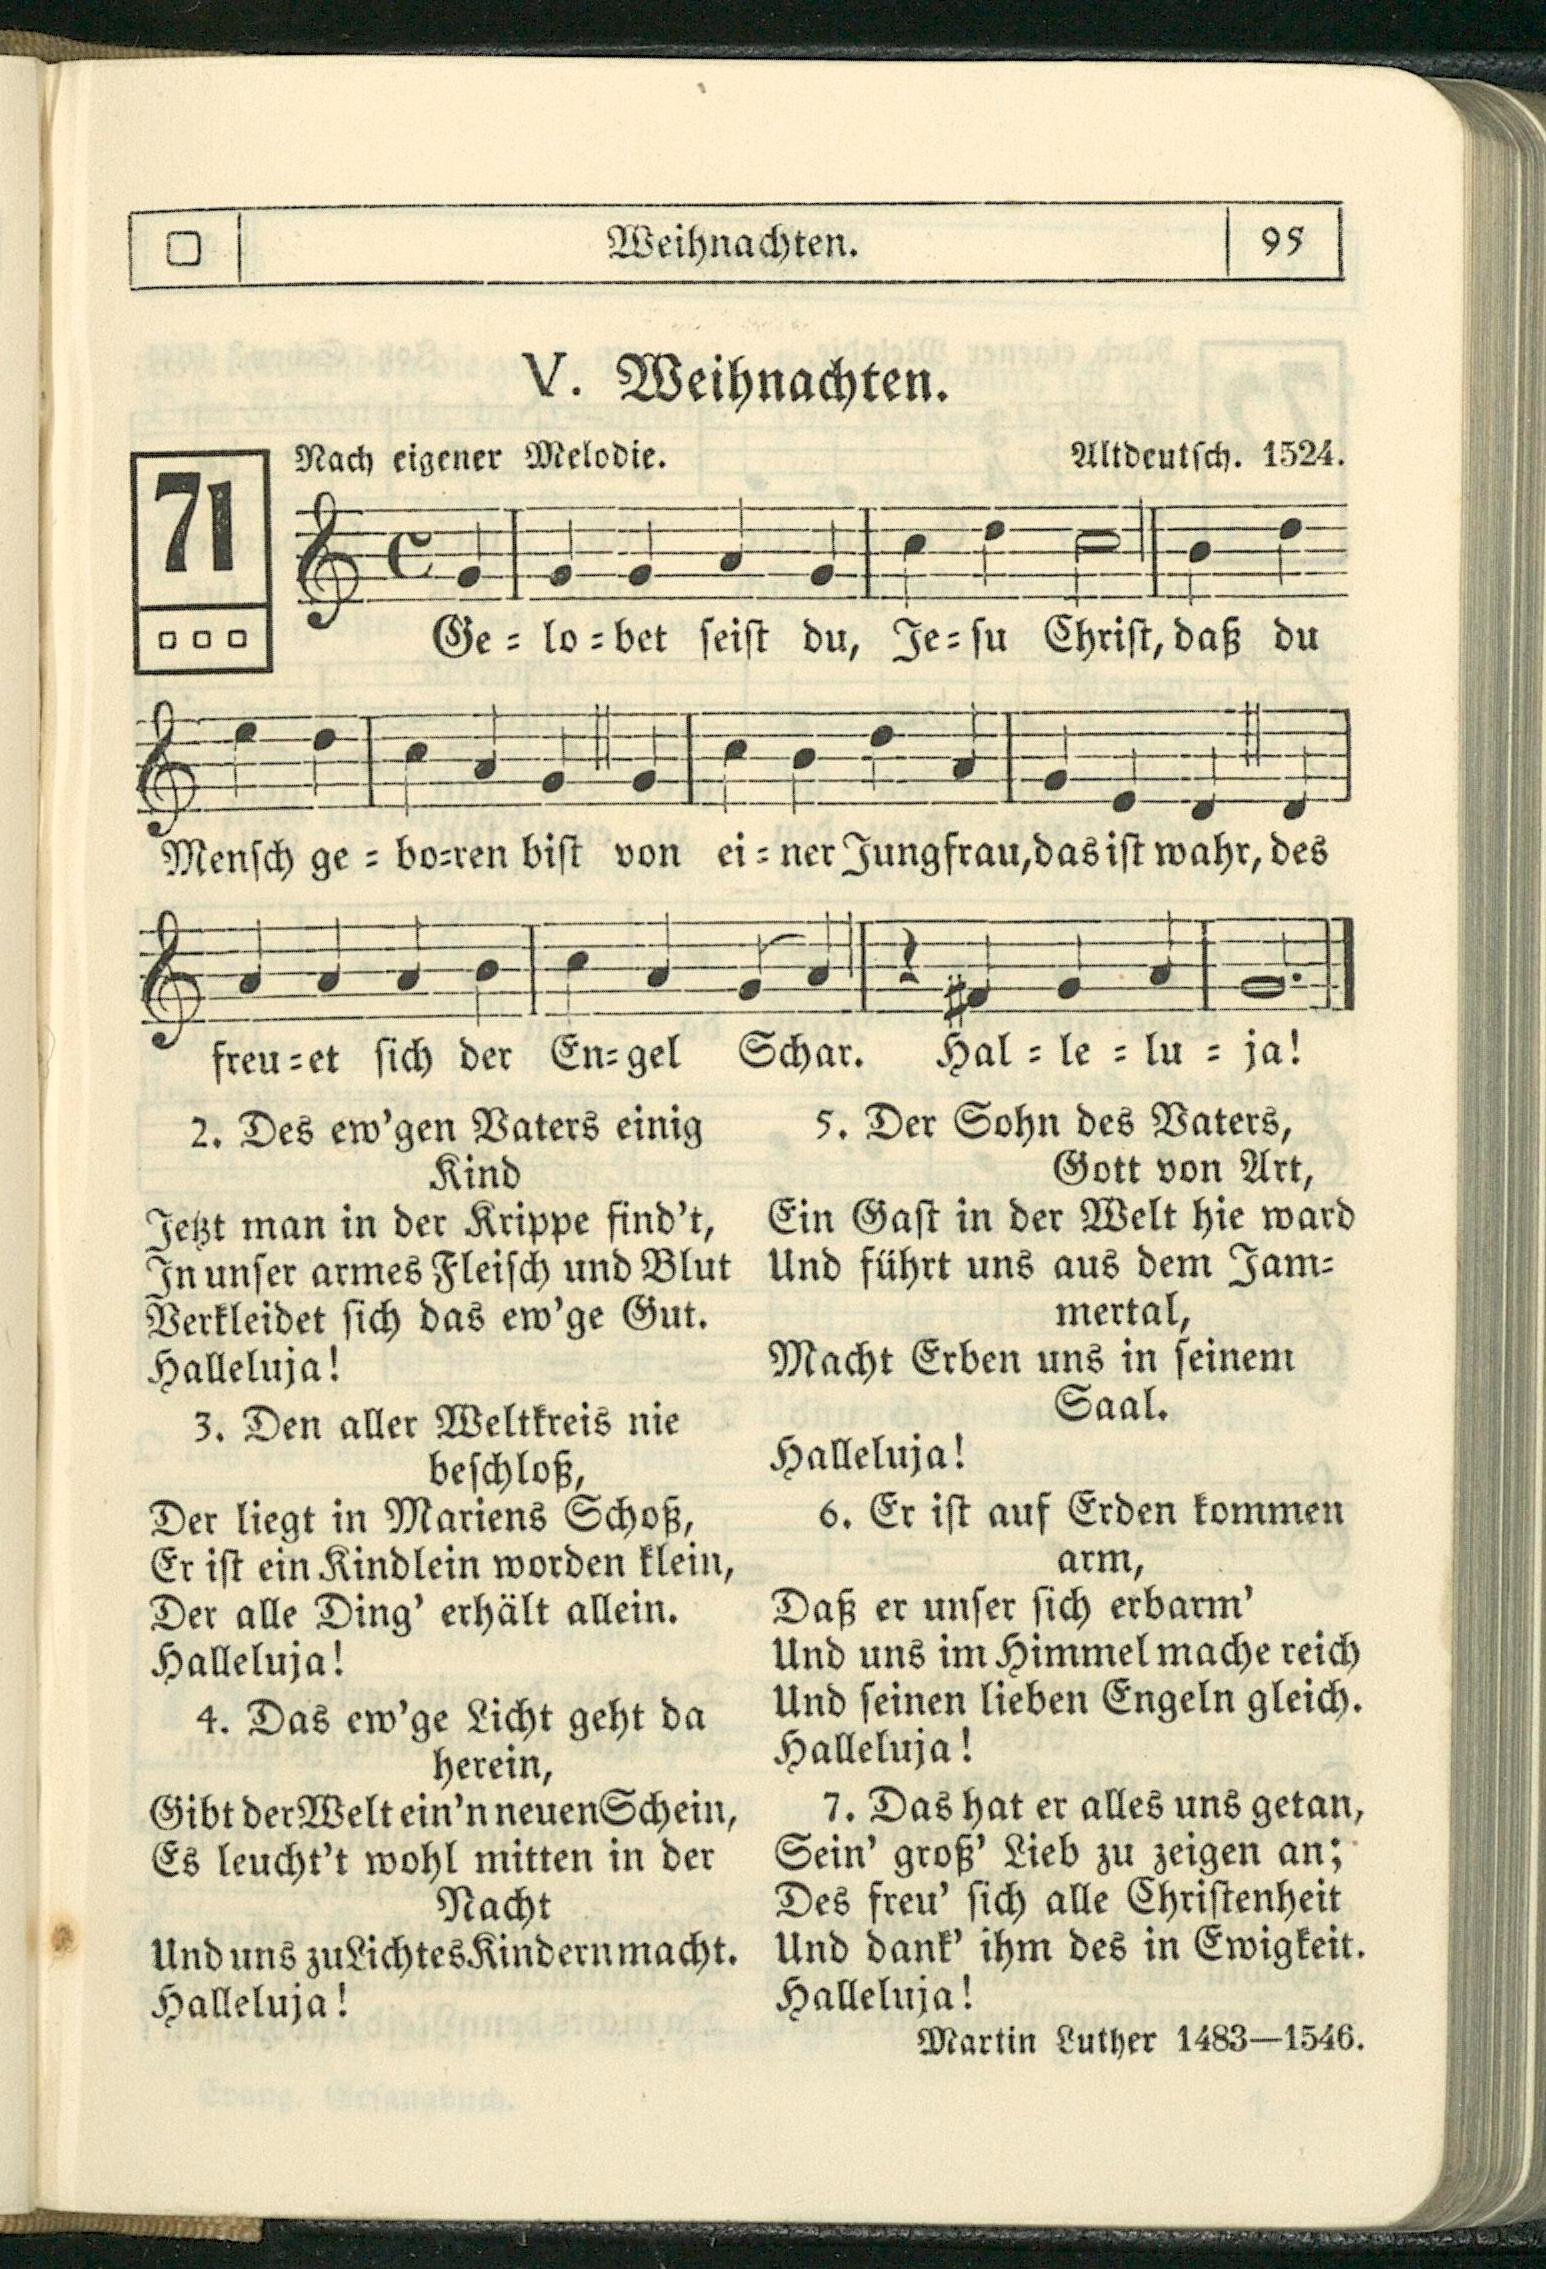 Weihnachten.
95
V. Weihnachten.
71
Nach eigener Melodie.
Altdeutsch. 1524.
Ge=lo=bet seist du, Je=su Christ, daß du
Mensch ge=bo=ren bist von ei=ner Jungfrau, das ist wahr, des
freu=et sich der En=gel Schar. Hal=le=lu=ja!
2. Des ew'gen Vaters einig
Kind
Jetzt man in der Krippe find't,
In unser armes Fleisch und Blut
Verkleidet sich das ew'ge Gut.
Halleluja!
3. Den aller Weltkreis nie
beschloß,
Der liegt in Mariens Schoß,
Er ist ein Kindlein worden klein,
Der alle Ding' erhält allein.
Halleluja!
4. Das ew'ge Licht geht da
herein,
Gibt der Welt ein'n neuen Schein,
Es leucht't wohl mitten in der
Nacht
Und uns zu Lichtes Kindern macht.
Halleluja!
5. Der Sohn des Vaters,
Gott von Art,
Ein Gast in der Welt hie ward
Und führt uns aus dem Jam=
mertal,
Macht Erben uns in seinem
Saal.
Halleluja!
6. Er ist auf Erden kommen
arm,
Daß er unser sich erbarm'
Und uns im Himmel mache reich
Und seinen lieben Engeln gleich.
Halleluja!
7. Das hat er alles uns getan,
Sein' groß' Lieb zu zeigen an;
Des freu' sich alle Christenheit
Und dank' ihm des in Ewigkeit.
Halleluja!
Martin Luther 1483—1546.